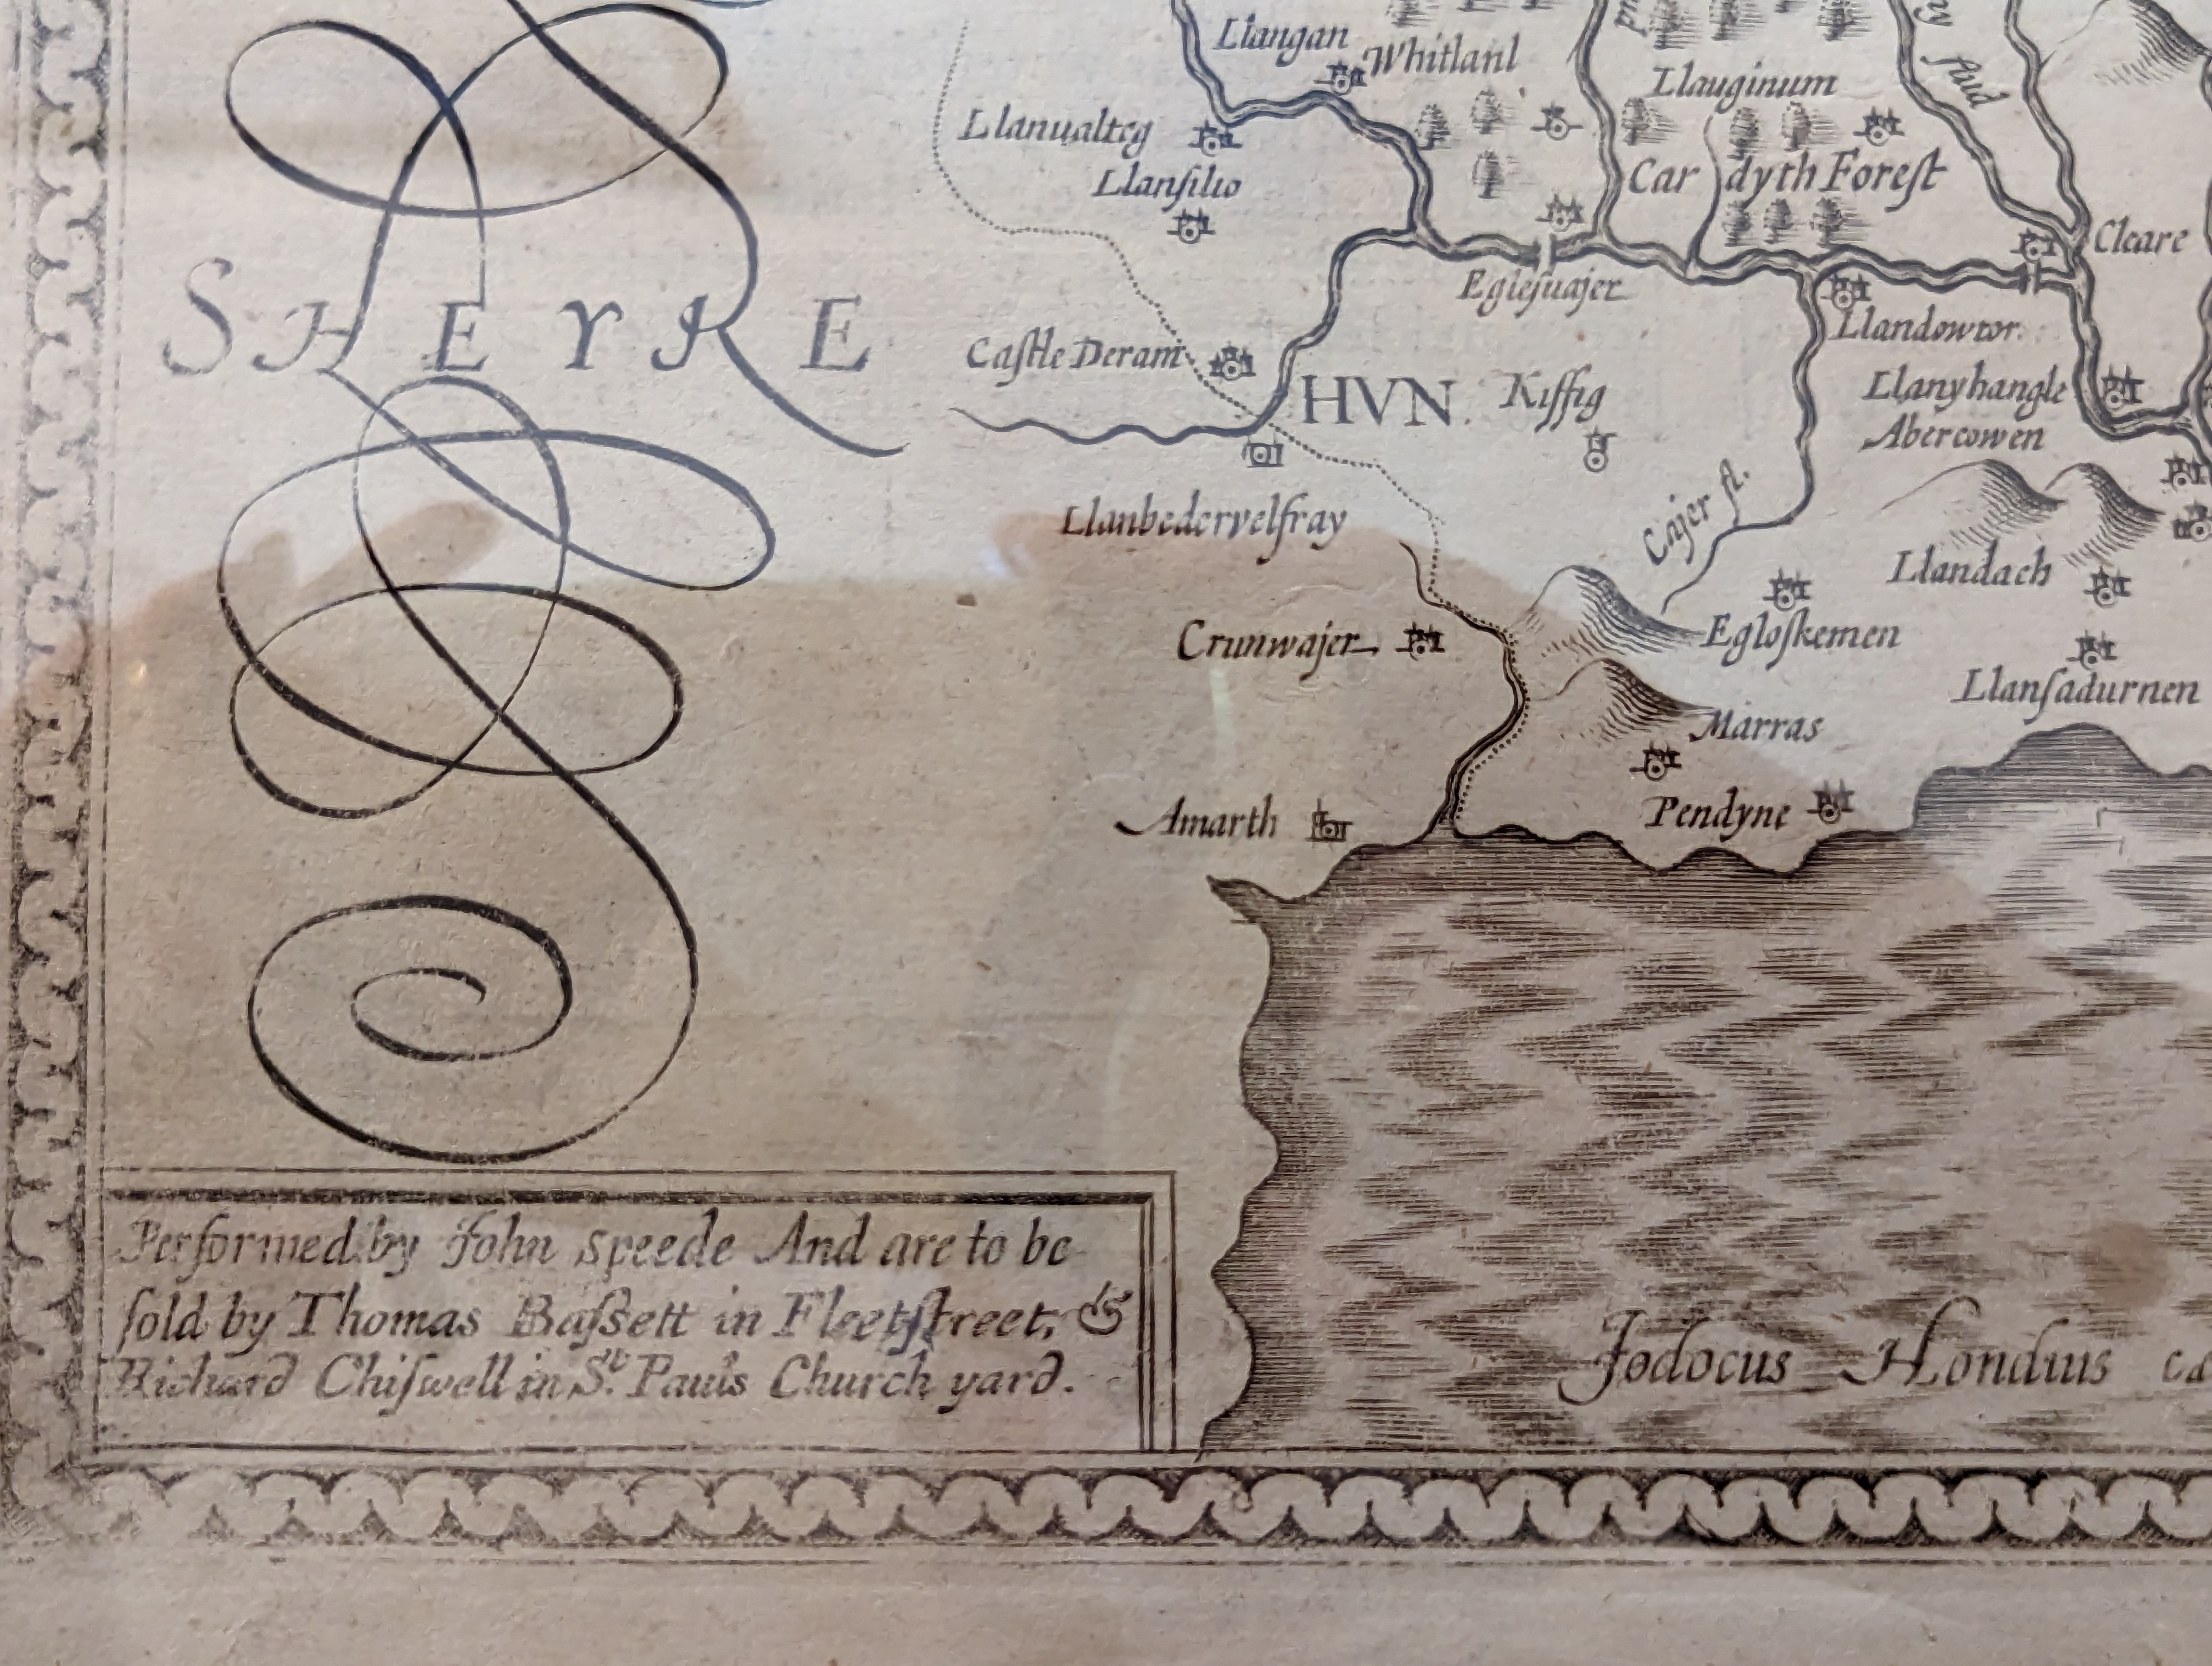 Llangan
Whitlanl
Llauginum
flud
Llanualteg
Llanſilio
Car dyth Foreſt
Cleare
Egleſuajer
SHEYRE
Llandowror.
Caſtle Deram
HVN.
Kiffig
Llanyhangle
Abercowen
Llanbedervelfray
Cajer fl.
Llandach
Crunwajer
Egloſkemen
Llanſadurnen
Marras
Amarth
Pendyne
Performed by John Speede And are to be
ſold by Thomas Baſsett in Fleetſtreet, &
Richard Chiſwell in St. Pauls Church yard.
Jodocus Hondius